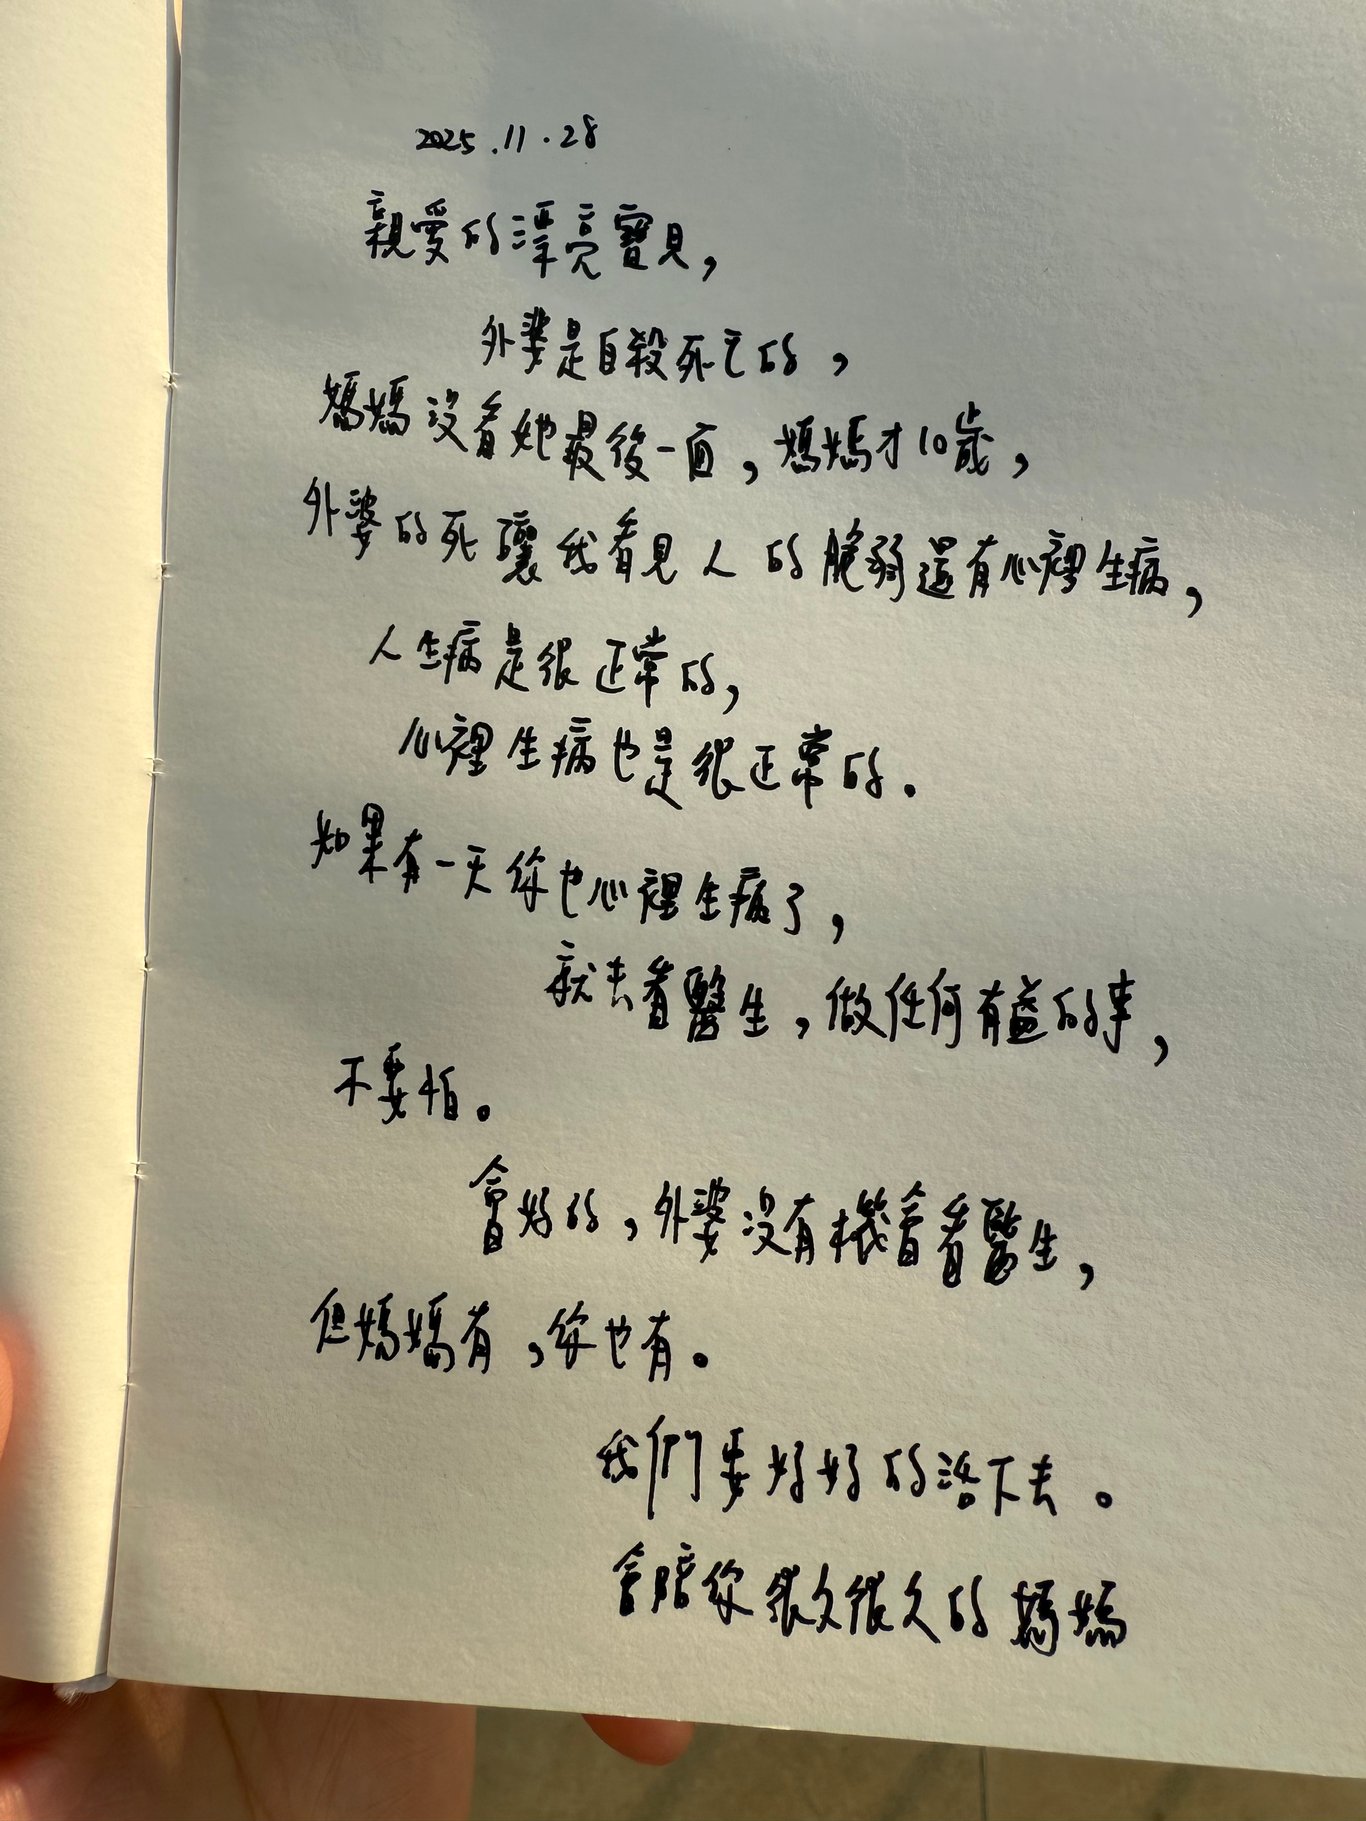 2025.11.28
親愛的漂亮寶貝，
外婆是自殺死亡的，
媽媽沒看她最後一面，媽媽才10歲，
外婆的死讓我看見人的脆弱還有心裡生病，
人生病是很正常的，
心裡生病也是很正常的。
如果有一天你也心裡生病了，
就去看醫生，做任何有益的事，
不要怕。
會好的，外婆沒有機會看醫生，
但媽媽有，你也有。
我們要好好的活下去。
會陪你很久很久的媽媽